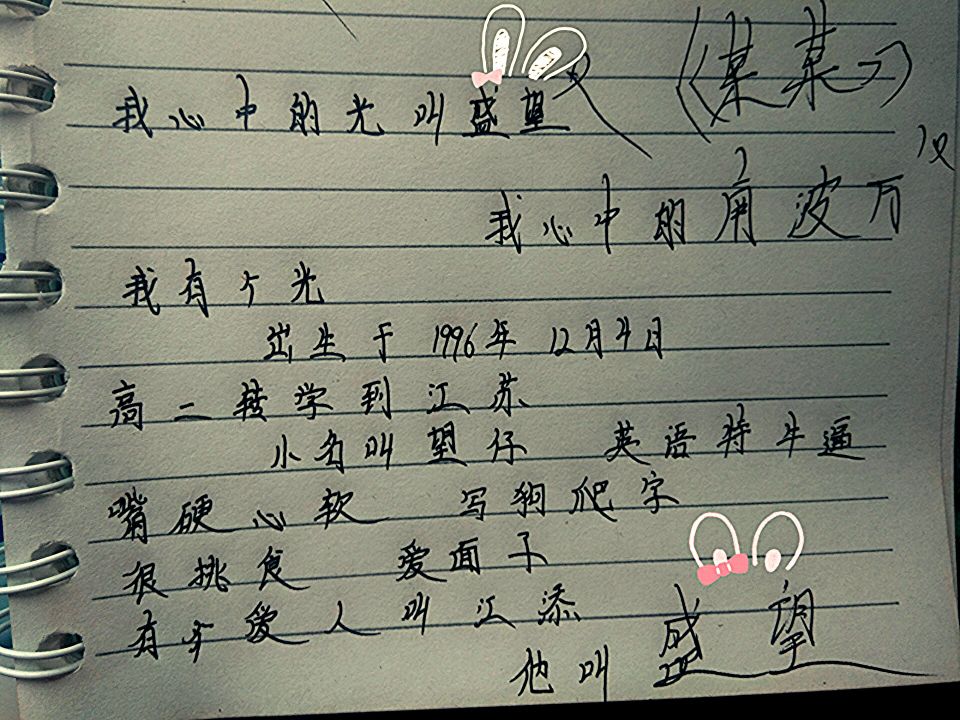 《某某》
我心中的光叫盛望
我心中的周波万
我有个光
出生于1996年12月4日
高二转学到江苏
小名叫望仔 英语特牛逼
嘴硬心软 写狗爬字
很挑食 爱面子
有个爱人叫江添
他叫盛望